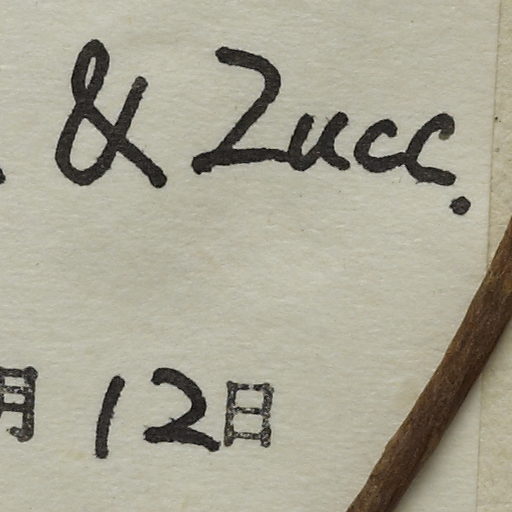 & Zucc.
月 12日